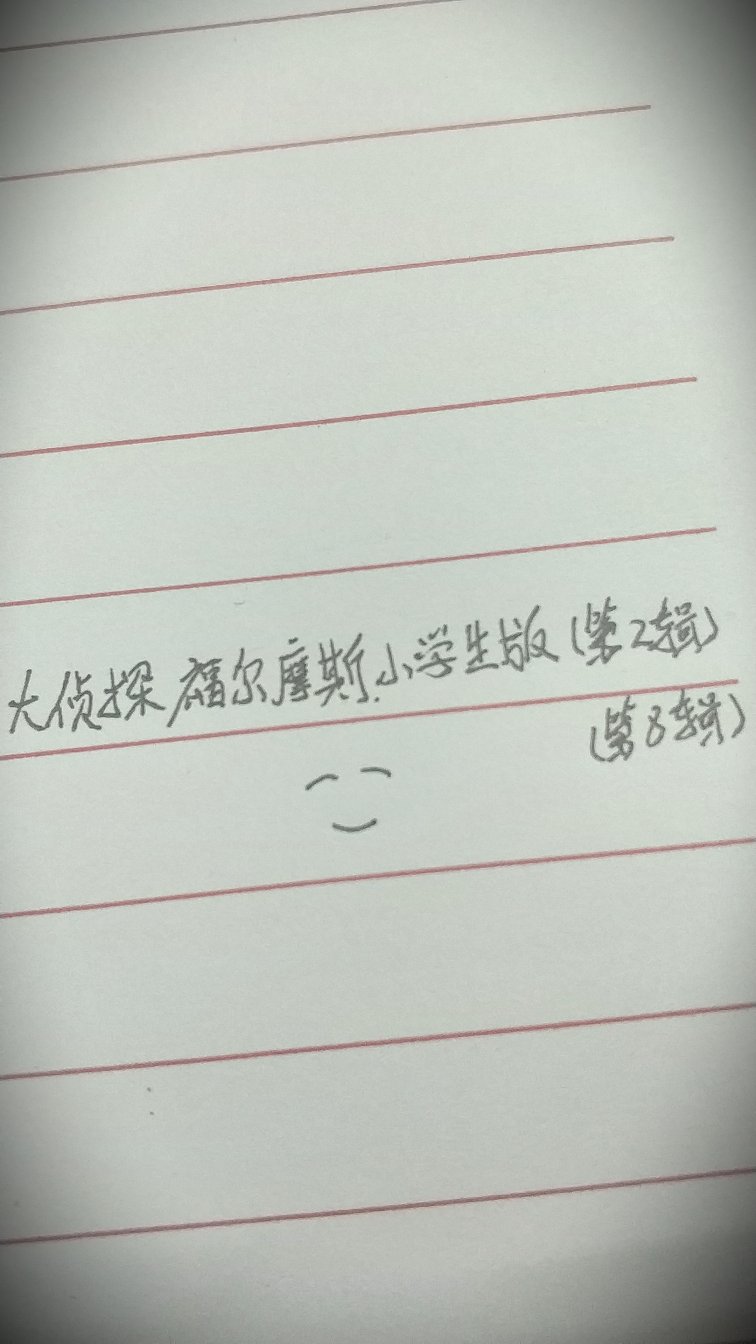 大侦探福尔摩斯.小学生版(第2辑)
(第8辑)